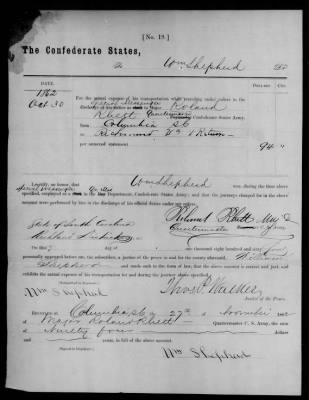 [No. 19.]
The Confederate States,
To Wm Shepherd Dr.
DATE. DOLLARS. CTS.
1862
Oct 30
For the actual expense of his transportation while traveling under orders in the
discharge of his duties as Special Messenger to Major Roland
Rhett Quartermaster Confederate States Army,
from Columbia SC
to Richmond Va & Return
per annexed statement 94 "
I certify, on honor, that Wm Shepherd was, during the time above
specified, employed as a Special Messenger in the Department, Confederate States Army, and that the journeys charged for in the above
account were performed by him in the discharge of his official duties under my orders.
Roland Rhett Maj &
Quartermaster
State of South Carolina
Richland District
On this day of one thousand eight hundred and sixty
personally appeared before me, the subscriber, a justice of the peace in and for the county aforesaid, William
Shepherd and made oath in the form of law, that the above account is correct and just, and exhibits
the actual expense of his transportation for and during the journey therein charged.
Wm Shepherd
Justice of the Peace.
Received at Columbia SC 27th of November 1862
of Major Roland Rhett Quartermaster C. S. Army, the sum
of Ninety four dollars
and cents, in full of the above account.
Wm Shepherd